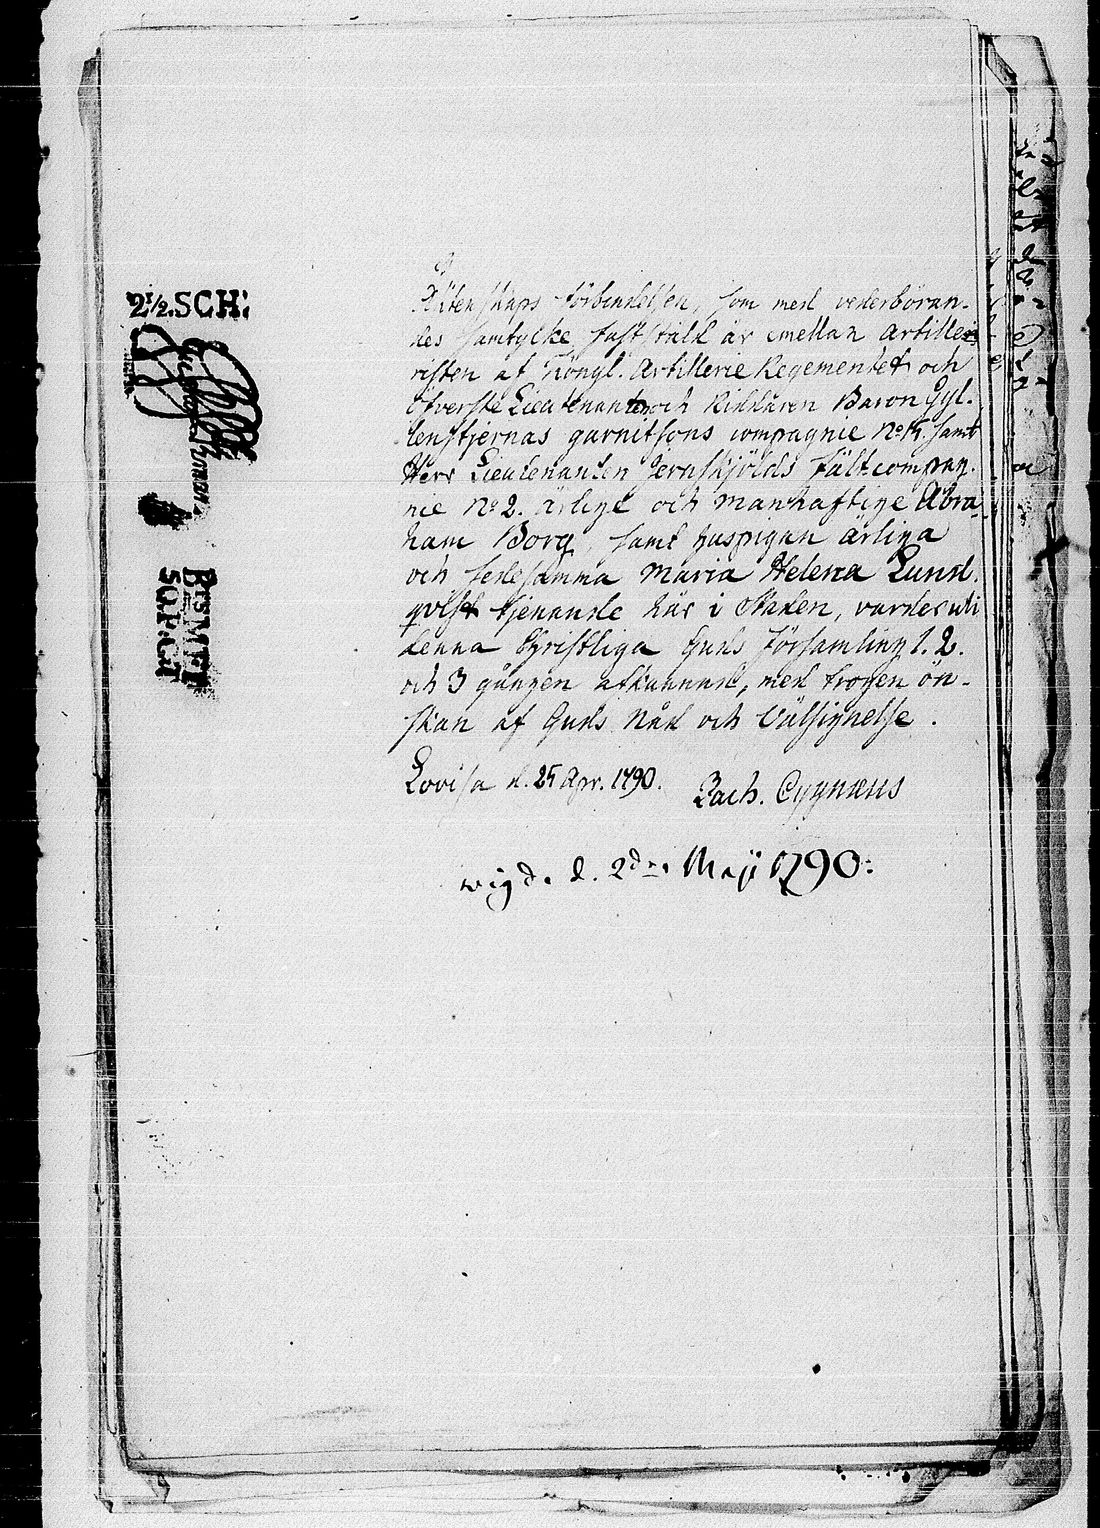 2½.SCH:
Äktenskaps förbindelsen, som med vederböran-
des samtycke fastställd är emellan Artille-
risten af Kongl. Artillerie Regementet och
Öfverste Lieutenanten och Riddaren Baron Gyl-
lenstjernas garnitsons compagnie No samt
Herr Lieutenanten Jernskjölds fältcompag-
nie No 2. ärlige och Manhaftige Abra-
ham Borg, samt huspigan ärliga
och sedesamma Maria Helena Lund-
qvist tjenande här i Staden, varder uti
denna Christliga Guds Församling 1. 2.
och 3 gången afkunnad, med trogen ön-
skan af Guds Nåd och Välsignelse.
Lovisa d. 25 Apr. 1790. Zach. Cygnæus
wigd. d. 2dn. Maji 1790: